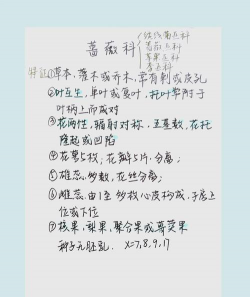 蔷薇科
绣线菊亚科
蔷薇亚科
苹果亚科
李亚科
特征①草本,灌木或乔木,常有刺或皮孔
②叶互生,单叶或复叶,托叶常附于
叶柄上而成对
③花两性,辐射对称,五基数,花托
隆起或凹陷
④花萼5枚,花瓣5片.分离;
⑤雄蕊:多数,花丝分离;
⑥雌蕊.由1至多数心皮构成,子房上
位或下位
⑦核果,梨果,聚合果或蓇葖果
种子无胚乳. X=7,8,9,17